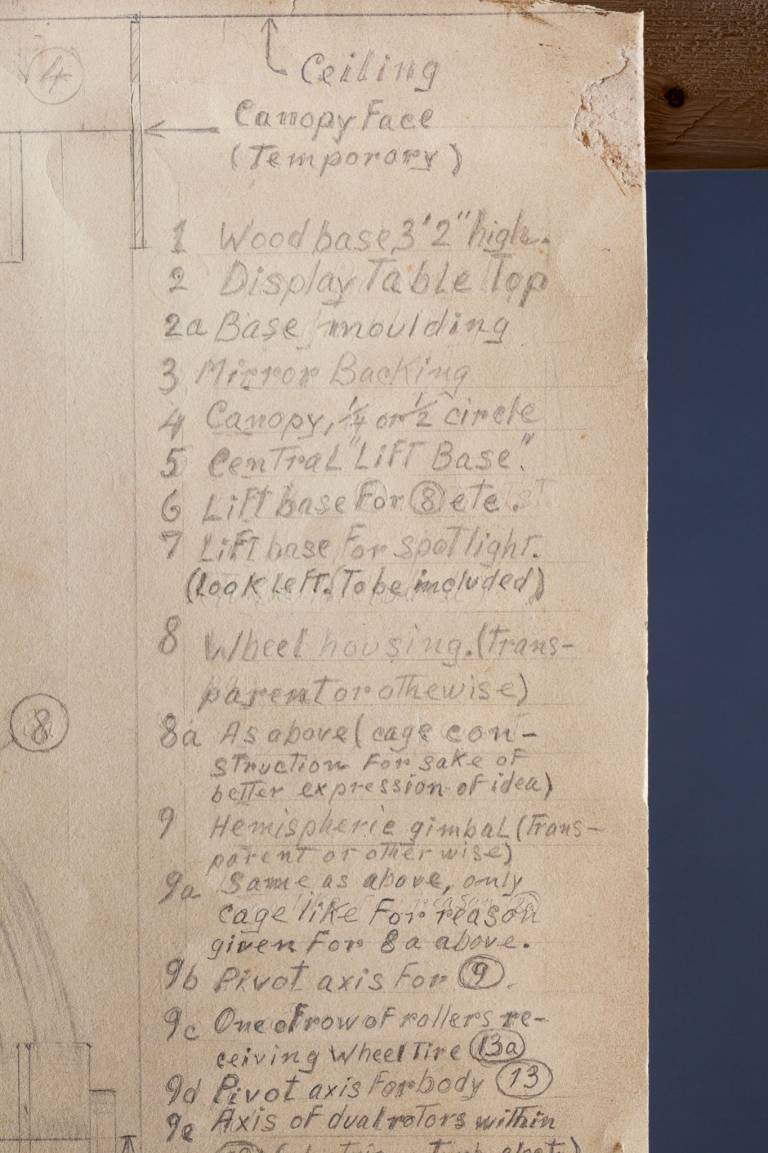 4
Ceiling
Canopy Face
(Temporary)
1 Wood base, 3'2" high.
2 Display Table Top
2a Base moulding
3 Mirror Backing
4 Canopy, 1/4 or 1/2 circle
5 Central "Lift Base".
6 Lift base for 8 etc.
7 Lift base for spotlight.
(look left. To be included)
8 Wheel housing. (Trans-
parent or othewise)
8
8a As above (cage con-
struction for sake of
better expression of idea)
9 Hemispheric gimbal (Trans-
parent or otherwise)
9a Same as above, only
cage like for reason
given for 8a above.
9b Pivot axis for 9.
9c One of row of rollers re-
ceiving Wheel Tire 13a
9d Pivot axis for body 13
9e Axis of dual rotors within